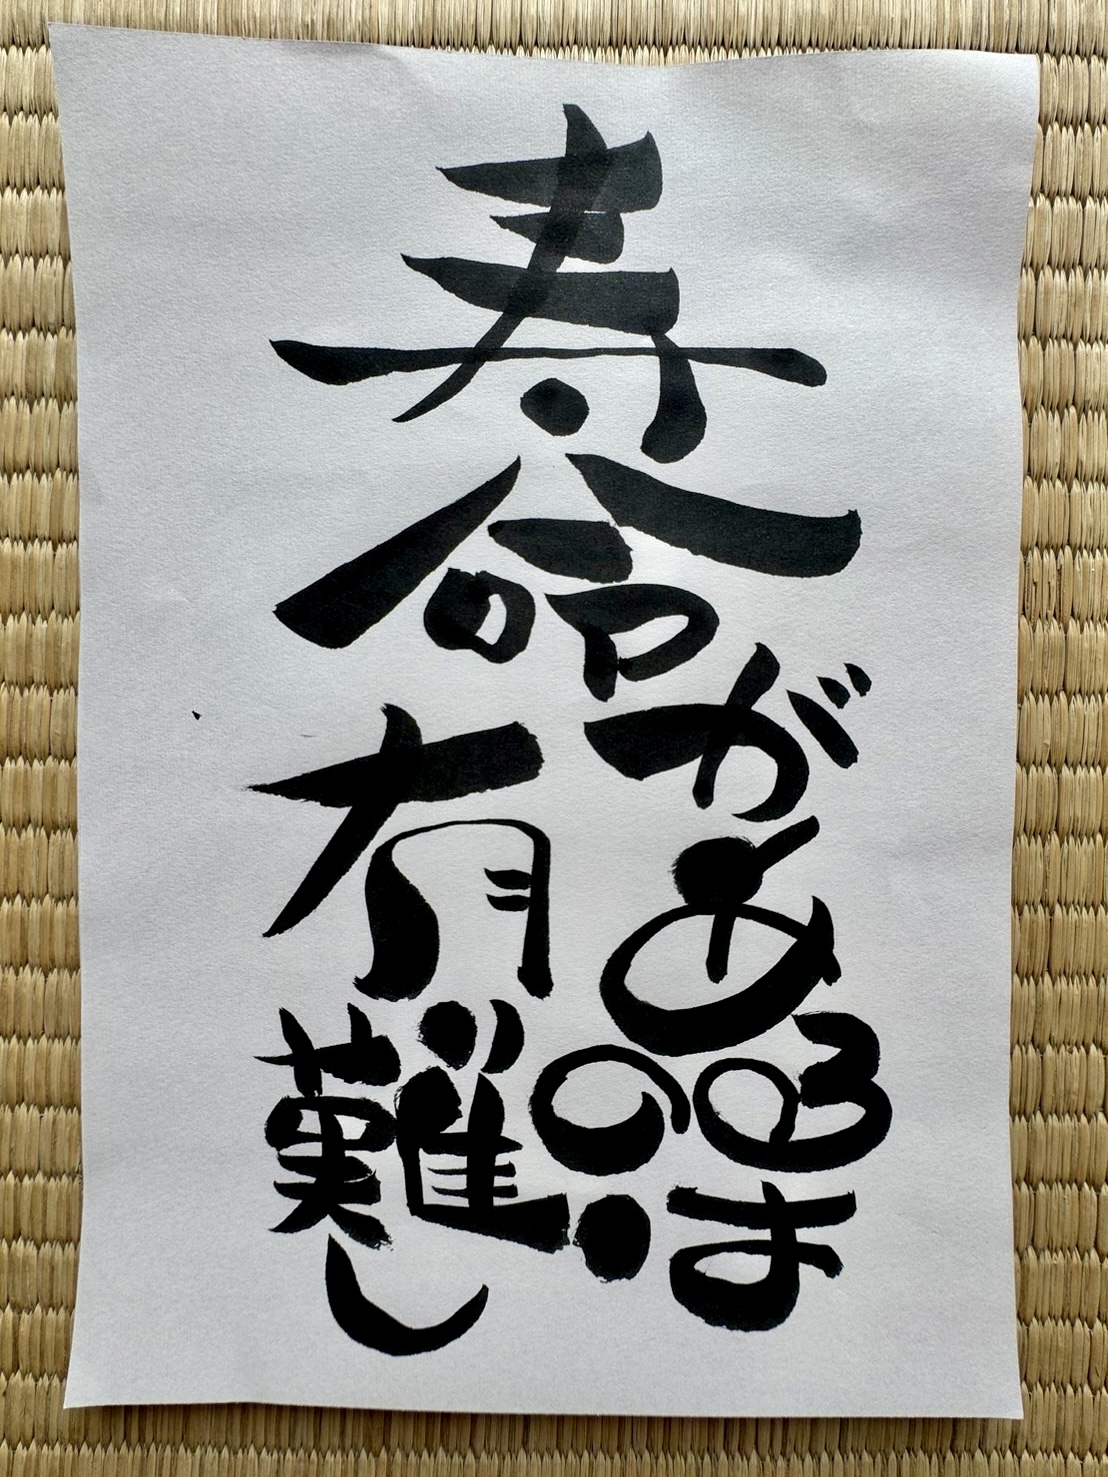 寿命
がある
のは
有難し